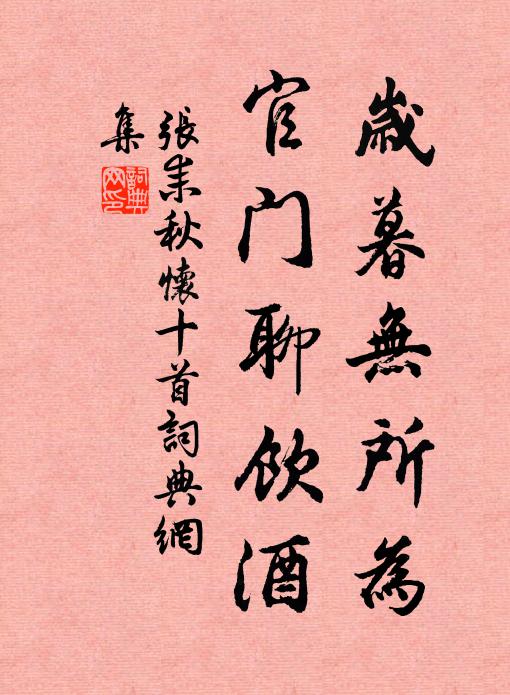 歲暮無所為
官门聊飲酒
張耒秋懷十首詞典網
集
詞典
网印